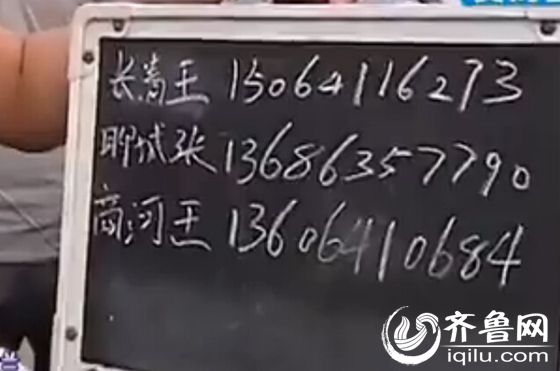 长清王 15064116273
聊城张 13686357790
商河王 13606410684
齐鲁网
iqilu.com